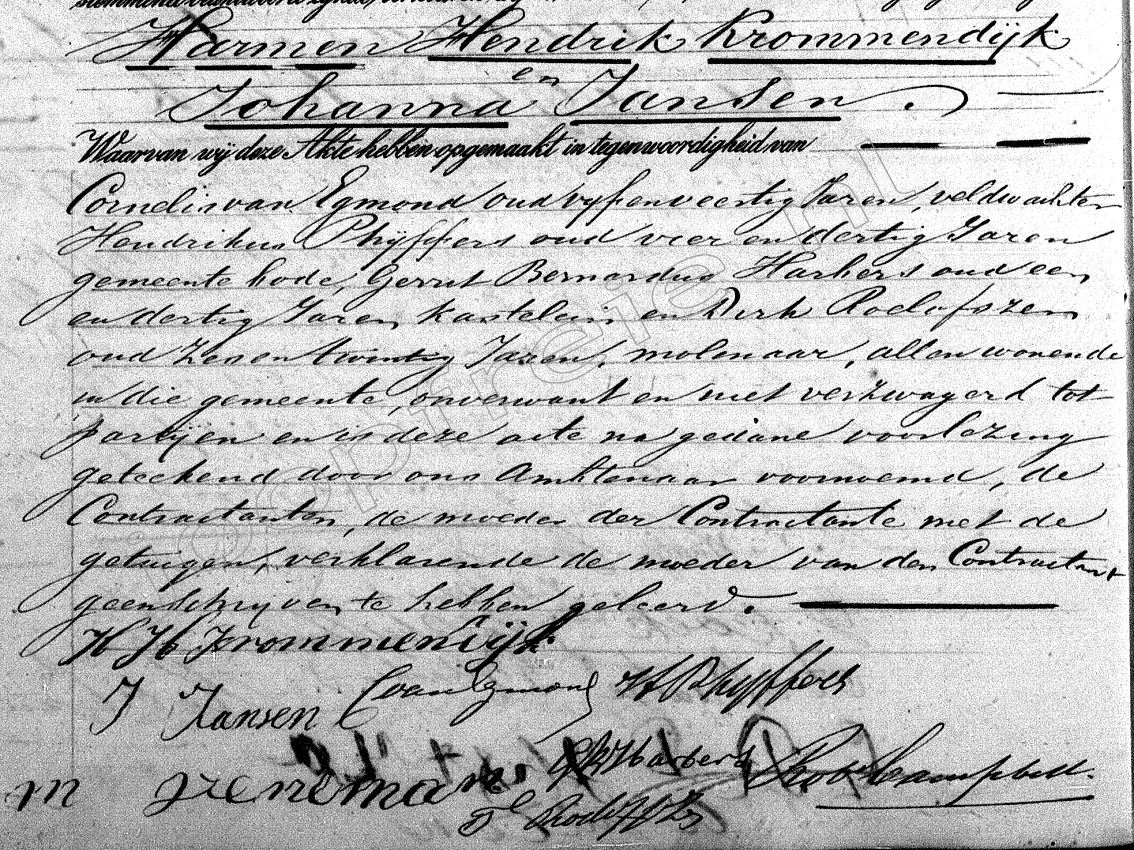 Harmen Hendrik Krommendijk
en
Johanna Jansen.
Waarvan wij deze Akte hebben opgemaakt in tegenwoordigheid van
Cornelis van Egmond oud vyfenveertig Jaren, veldwachter
Hendrikus Phÿffers oud vier en dertig Jaren
gemeente bode, Gerrit Bernardus Harbers oud een
en dertig Jaren, kastelein en Derk Roelofszen
oud zesentwintig Jaren, molenaar, allen wonende
in die gemeente, onverwant en niet verzwagerd tot
partÿen en is deze acte na gedane voorlezing
geteekend door ons Ambtenaar voornoemd, de
Contractanten, de moeder der Contractante met de
getuigen, verklarende de moeder van den Contractant
geen schryven te hebben geleerd.
H H Krommendijk
J Jansen C van Egmond H Phyffers
GB Harbers
m